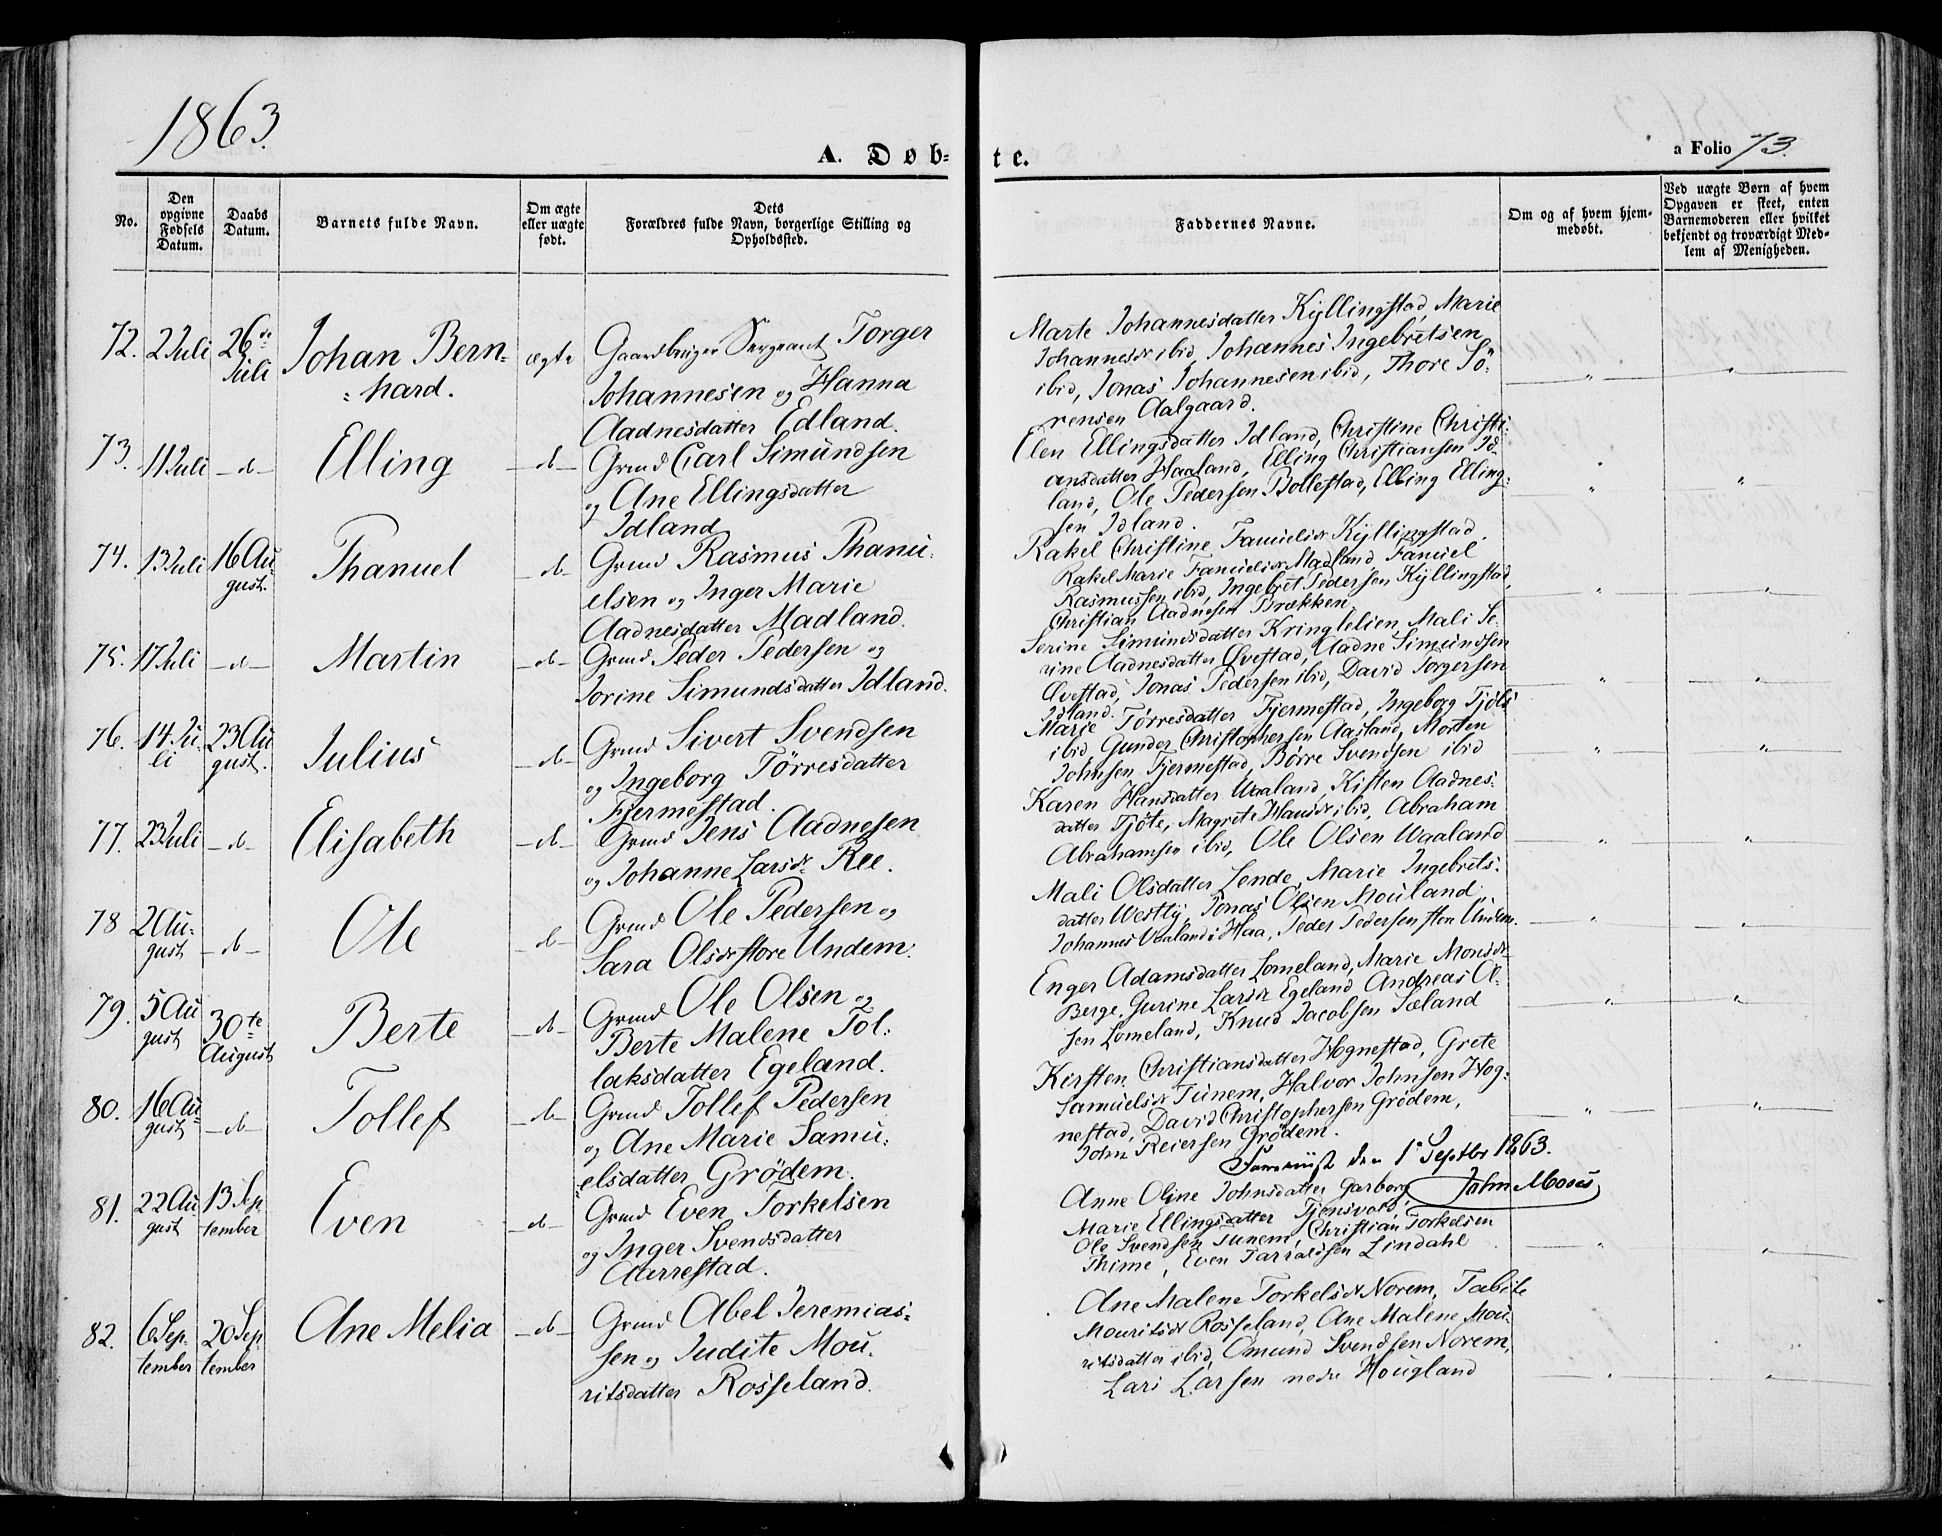 1863.
A. Døb-
te.
a Folio 73.
No.
Den opgivne Fødsels Datum.
Daabs Datum.
Barnets fulde Navn.
Om ægte eller uægte født.
Dets Forældres fulde Navn, borgerlige Stilling og Opholdssted.
Faddernes Navne.
Om og af hvem hjemmedøbt.
Ved uægte Børn af hvem Opgaven er skeet, enten Barnemoderen eller hvilket bekjendt og troværdigt Medlem af Menigheden.
72. 2 Juli 26de Juli Johan Bern=
=hard. ægte
Gaardbruger Sergeant Torger
Johannesen og Hanna
Aadnesdatter Edland.
Marte Johannesdatter Kyllingstad, Marie
Johannesdr ibid, Johannes Ingebretsen
ibid, Jonas Johannesen ibid, Thore Sö=
rensen Aalgaard.
73. 11 Juli -d- Elling -d-
Grmd Carl Simundsen
og Ane Ellingsdatter
Idland
Elen Ellingsdatter Idland, Christine Christi=
ansdatter Haaland, Elling Christiansen Id=
land, Ole Pedersen Bollestad, Elling Elling=
sen Idland.
74. 13 Juli 16 Au=
gust. Thanuel -d-
Grmd Rasmus Thanu=
elsen og Inger Marie
Aadnesdatter Madland.
Rakel Christine Fanuelsdr Kyllingstad.
Rakel Marie Fanuelsdr Madland, Fanuel
Rasmussen ibid, Ingebret Pedersen Kyllingstad,
Christian Aadnesen Brækken
75. 17 Juli -d- Martin -d-
Grmd Peder Pedersen og
Jorine Simundsdatter Idland.
Serine Simundsdatter Kringlelien, Mali Se=
rine Aadnesdatter Øvestad, Aadne Simundsen
Øvestad, Jonas Pedersen ibid, David Torgersen
Idland.
76. 14 Ju=
li 23 Au=
gust. Julius -d-
Grmd Sivert Svendsen
og Ingeborg Törresdatter
Fjermestad.
Marie Törresdatter Fjermestad, Ingeborg
ibid, Gunder Christophersen Aasland, Morten
Johnsen Fjermestad, Børre Svendsen ibid
77. 23 Juli -d- Elisabeth -d-
Grmd Jens Aadnesen
og Johanne Larsdr Ree.
Karen Hansdatter Waaland, Kisten Aadnes=
datter Tjöte, Magrete Hansdr ibid, Abraham
Abrahamsen ibid, Ole Olsen Waaland
78 2 Au=
gust -d- Ole -d-
Grmd Ole Pedersen og
Sara Olsdr store Undem.
Mali Olsdatter Lende, Marie Ingebrets=
datter Westly, Jonas Olsen Mouland
Johannes Vaaland i Haa, Peder Pedersen store Undem.
79. 5 Au
gust 30te
August Berte -d-
Grmd Ole Olsen og
Berte Malene Tol=
laksdatter Egeland.
Enger Adamsdatter Lomeland, Marie Monsdr
Berge, Gurine Larsdr Egeland Andreas Ol=
sen Lomeland, Knud Jacobsen Sæland
80. 16 Au=
gust -d- Tollef -d-
Grmd Tollef Pedersen
og Ane Marie Samu=
elsdatter Grödem.
Kirsten Christiansdatter Hognestad, Grete
Samuelsdr Tunem, Halvor Johnsen Hog=
nestad, David Christophersen Grödem,
John Reiersen Grödem.
den 1 Septbr 1863.
John Moses
81. 22 Au
gust 13 Sep
tember Even -d-
Grmd Even Torkelsen
og Inger Svendsdatter
Aarrestad.
Anne Oline Johnsdatter Garborg
Marie Ellingsdatter Tjensvold,
Ole Svendsen Tunem, Christian Torkelsen
Thime, Even Tarraldsen Lindahl
82. 6 Sep=
tember 20 Sep
tember Ane Melia -d-
Grmd Abel Jeremias=
sen og Judite Mou=
ritsdatter Rosseland.
Ane Malene Torkelsdr Norem, Tabite
Mouritsdr Rosseland, Ane Malene Mou=
ritsdatter ibid, Omund Svendsen Norem,
Lars Larsen nedre Hougland